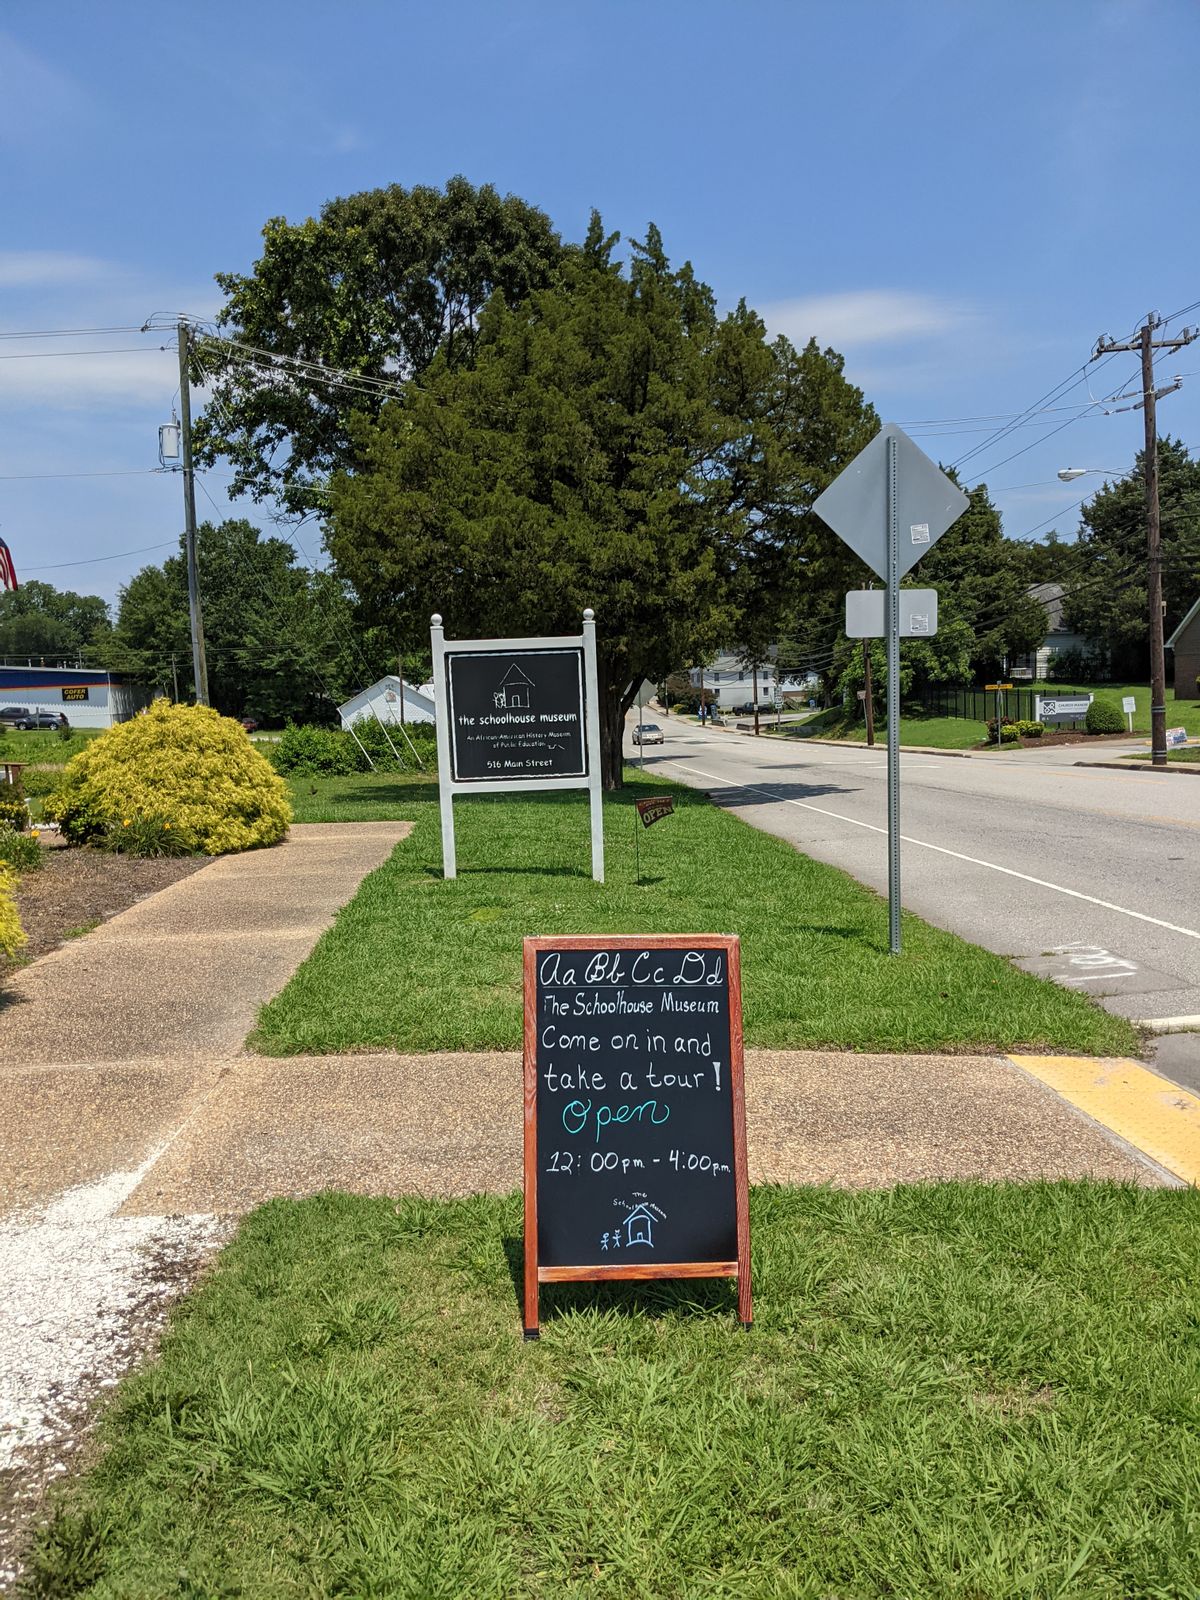 COFER
AUTO
the schoolhouse museum
An African-American History Museum
of Public Education
516 Main Street
OPEN
CHURCH MANOR
Aa Bb Cc Dd
The Schoolhouse Museum
Come on in and
take a tour!
Open
12:00pm - 4:00p.m.
The
Schoolhouse Museum